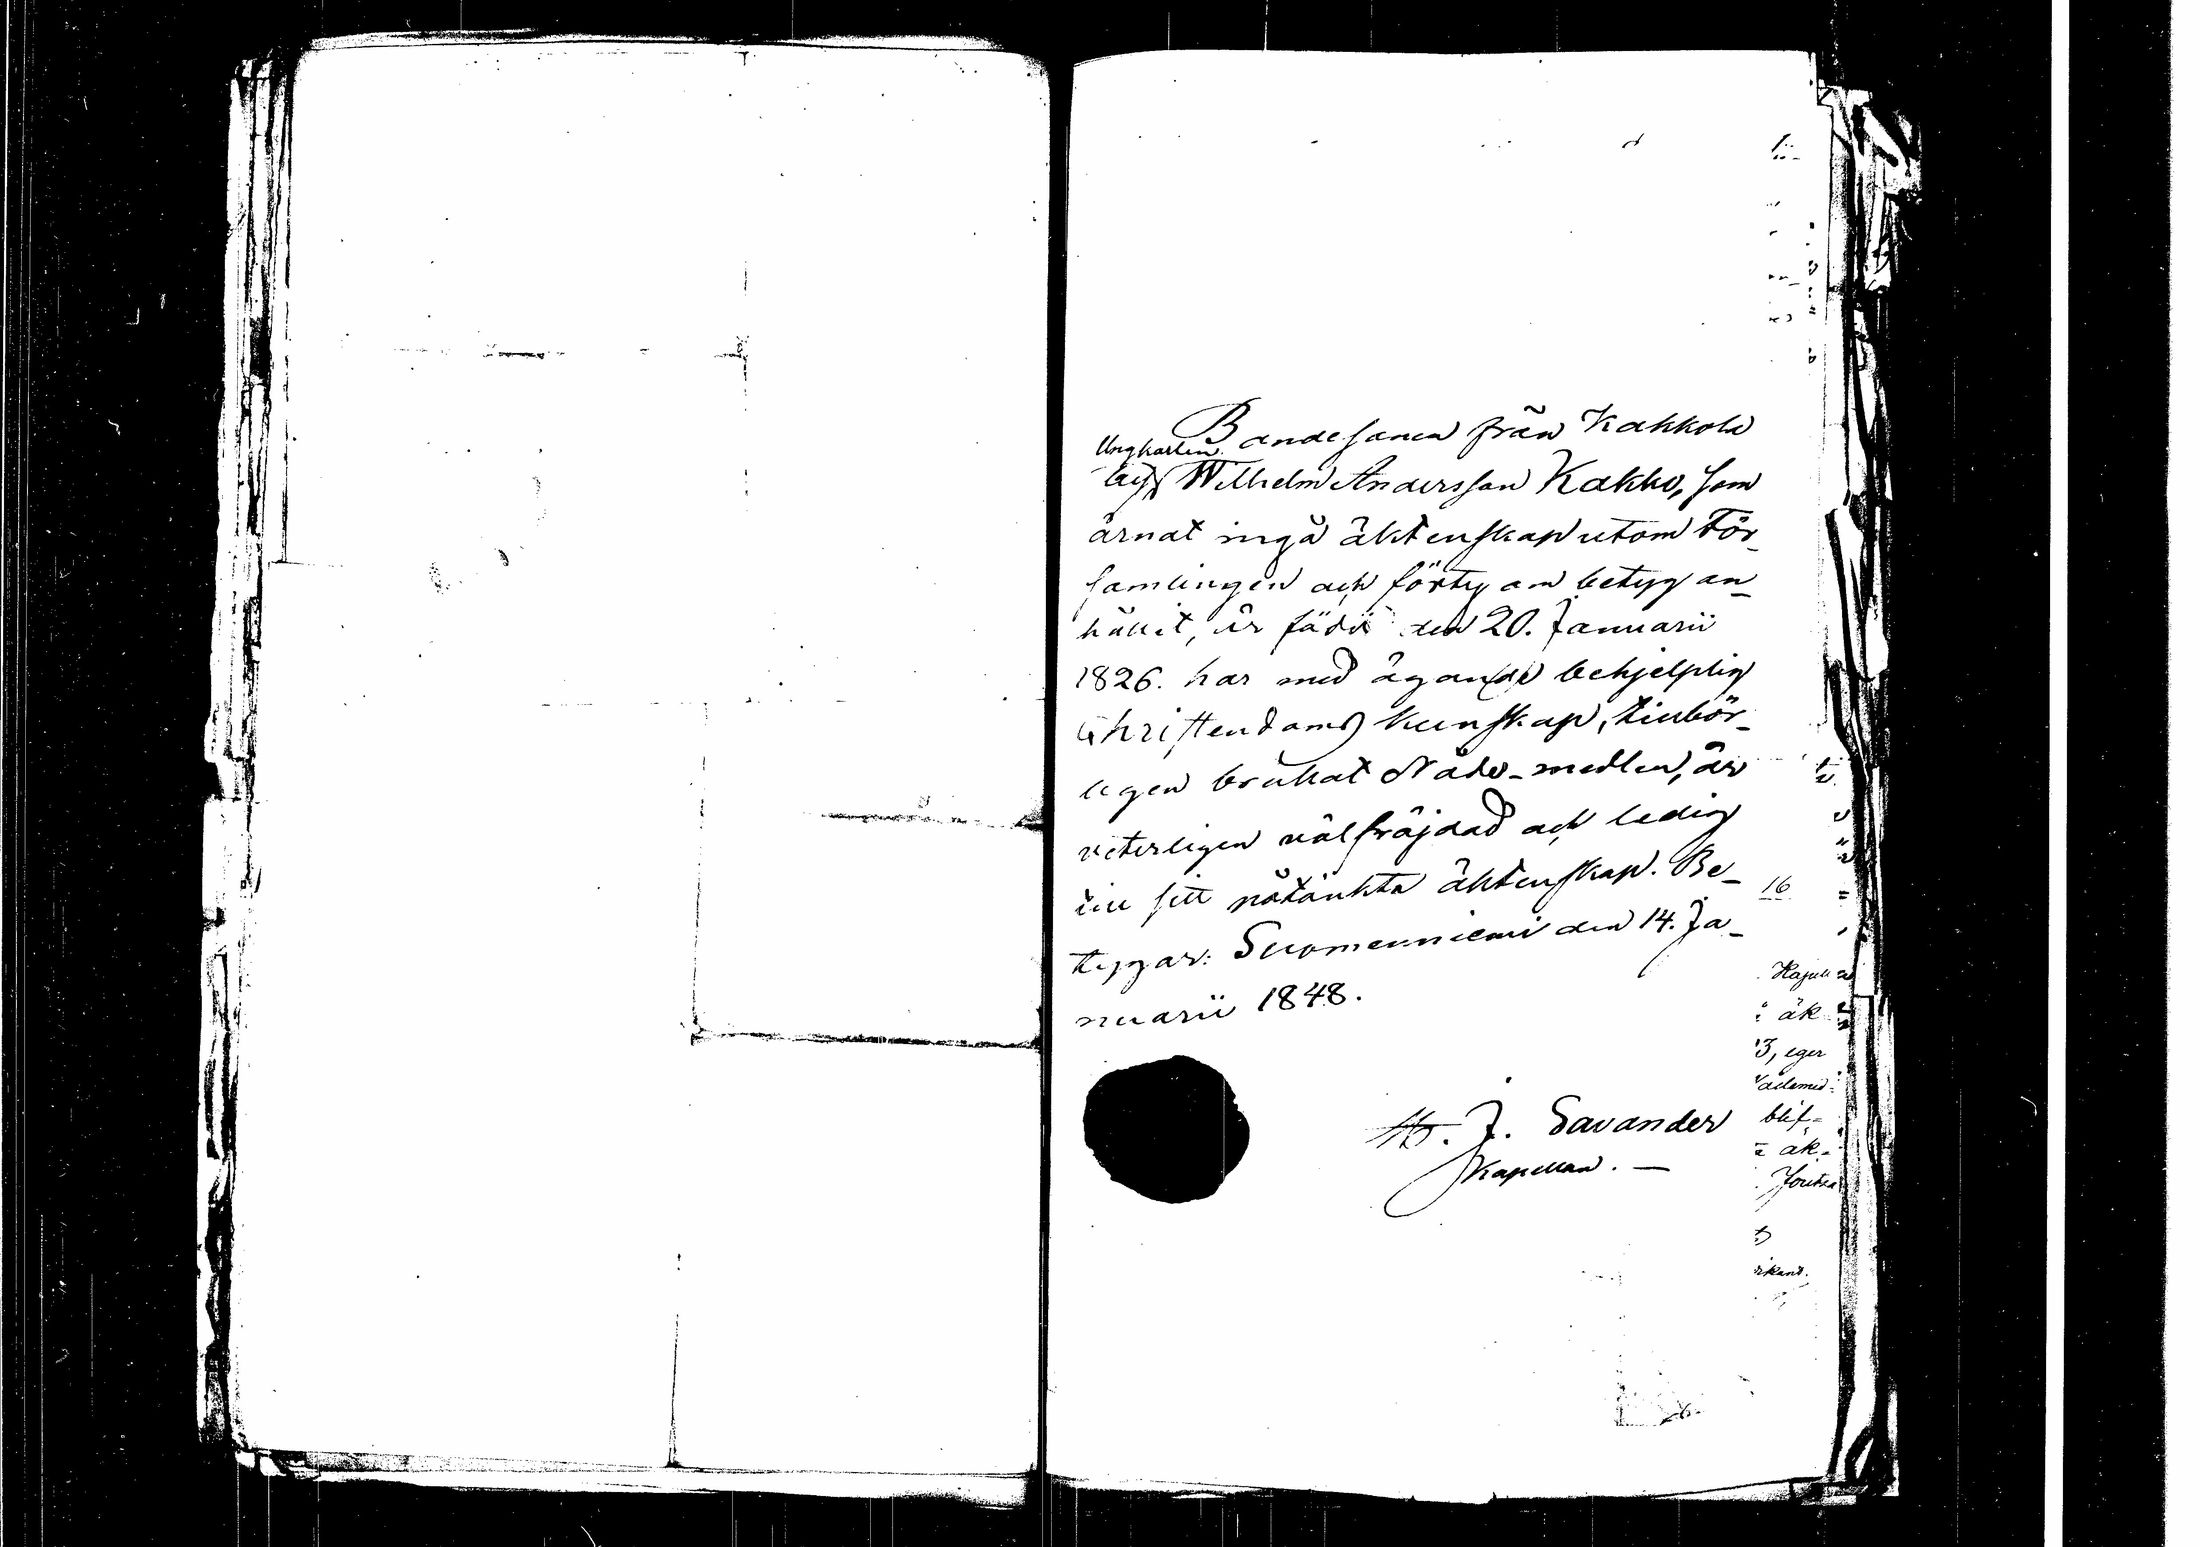 Bondesonen från Kakkola
Ungkarlen
by Wilhelm Andersson Kakko, som
ärnat ingå äktenskap utom För-
samlingen och förty om betyg an-
hållit, är född den 20. Januarii
1826. har med ägande behjelplig
Christendoms kunskap, tillbör-
ligen brukat Nåde-medlen, är
veterligen välfräjdad och ledig
till sitt påtänkta äktenskap. Be-
tygar: Suomenniemi den 14. Ja-
nuarii 1848.
J. Savander
Kapellan.
16
äk
3, eger
blif-
äk-